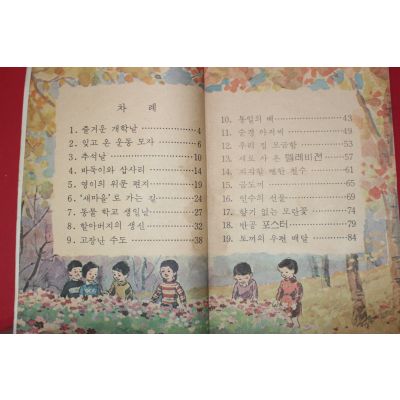 차 례
1. 즐거운 개학날 4
2. 잊고 온 운동 모자 6
3. 추석날 10
4. 바둑이와 삽사리 14
5. 영이의 위문 편지 19
6. '새마을'로 가는 길 24
7. 동물 학교 생일날 27
8. 할아버지의 생신 32
9. 고장난 수도 38
10. 통일의 배 43
11. 순경 아저씨 49
12. 우리 집 모금함 53
13. 새로 사 온 텔레비전 57
14. 61
15. 금도끼 65
16. 민수의 선물 70
17. 향기 없는 모란꽃 74
18. 반공 포스터 79
19. 토끼의 우편 배달 84